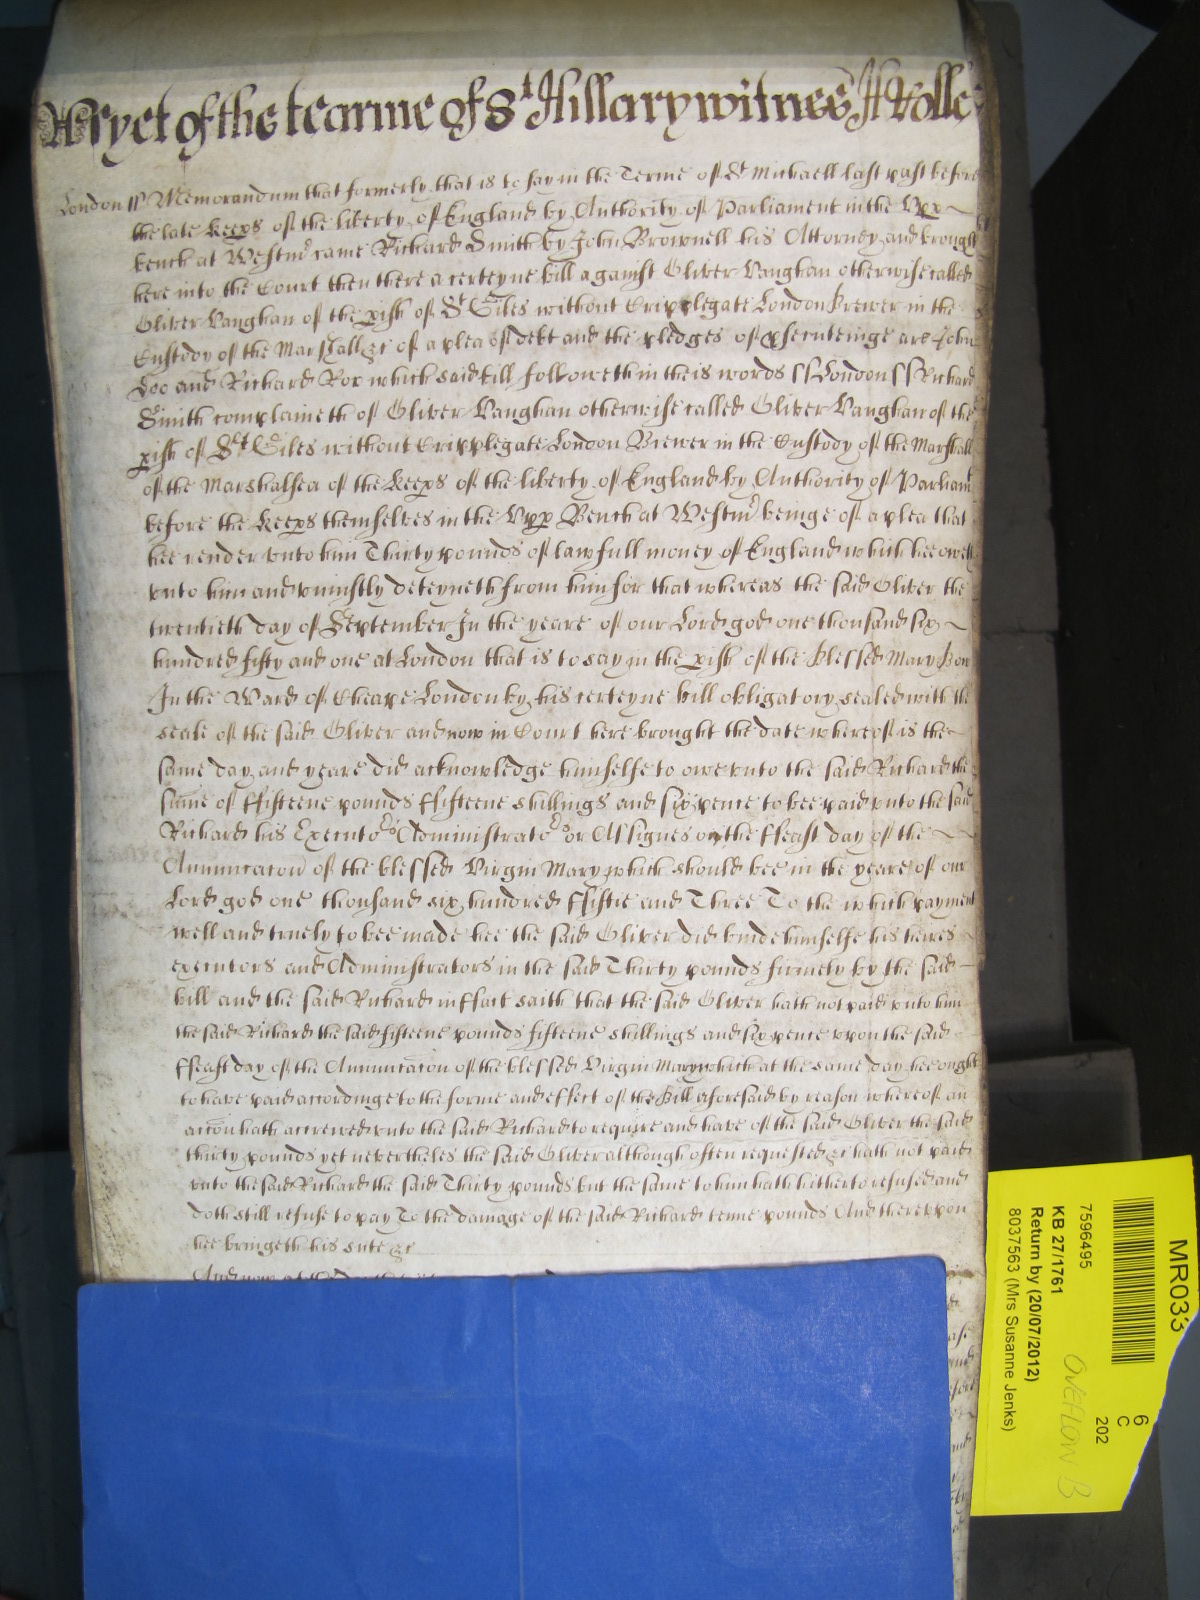 As yet of the tearme of St Hillary witnes H Rolle
London ss Memorandum that formerly that is to say in the Terme of St Michaell last past before
the late Keeps of the liberty of England by Authority of Parliament in the Upp
bench at Westmr came Richard Smith by John Brownell his Attorney and brought
here into the Court then there a certeyne bill against Oliver Vaughan otherwise called
Oliver Vaughan of the pish of St Giles without Cripplegate London Brewer in the
Custody of the Marshall &c of a plea of debt and the pledges of psecuteinge are John
Doo and Richard Roo which said bill followeth in theis words ss London ss Richard
Smith complaineth of Oliver Vaughan otherwise called Oliver Vaughan of the
pish of St Giles without Cripplegate London Brewer in the Custody of the Marshall
of the Marshalsea of the Keeps of the liberty of England by Authority of Parliamt
before the Keeps themselves in the Upp Bench at Westmr beinge of a plea that
hee render unto him Thirty pounds of lawfull money of England which hee oweth
unto him and uniustly deteyneth from him for that whereas the said Oliver the
twentieth day of September In the yeare of our Lord god one thousand six
hundred fifty and one at London that is to say in the pish of the blessed Mary Bow
In the Ward of Cheape London by his certeyne bill obligatory sealed with the
seale of the said Oliver and now in Court here brought the date whereof is the
same day and yeare did acknowledge himselfe to owe unto the said Richard the
sume of ffifteene pounds ffifteene shillings and sixpence to bee paid unto the said
Richard his Executors Administrators or Assignes on the ffeast day of the
Anunciacon of the blessed Virgin Mary which should bee in the yeare of our
Lord god one thousand six hundred ffiftie and Three To the which payment
well and truely to bee made hee the said Oliver did binde himselfe his heires
executors and Administrators in the said Thirty pounds firmely by the said
bill and the said Richard in ffact saith that the said Oliver hath not paid unto him
the said Richard the said fifteene pounds fifteene shillings and sixpence upon the said
ffeast day of the Anunciacon of the blessed Virgin Mary which at the same day hee ought
to have paid accordinge to the forme and effect of the Bill aforesaid by reason whereof an
accon hath accrewed unto the said Richard to require and have of the said Oliver the said
thirty pounds yet nevertheles the said Oliver although often requested &c hath not paid
unto the said Richard the said Thirty pounds but the same to him hath hitherto refused and
doth still refuse to pay To the damage of the said Richard tenne pounds And thereupon
hee bringeth his sute &c
MR033
6
C
202
7596495
KB 27/1761
Return by (20/07/2012)
8037563 (Mrs Susanne Jenks)
OVEFLOW B